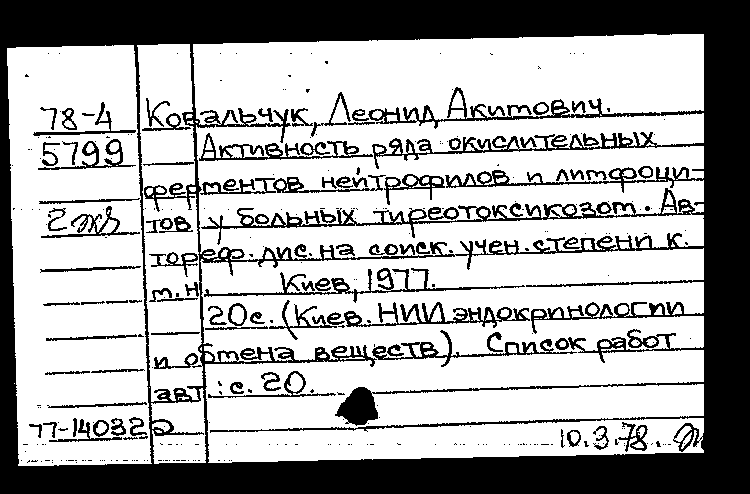 78-4 Ковальчук, Леонид Акимович.
5799 Активность ряда окислительных
ферментов нейтрофилов и лимфоци-
2 экз тов у больных тиреотоксикозом. Ав-
тореф. дис. на соиск. учен. степени к.
м.н. Киев, 1977.
20с. (Киев. НИИ эндокринологии
и обмена веществ). Список работ
авт.: с. 20.
77-14032
10.3.78.